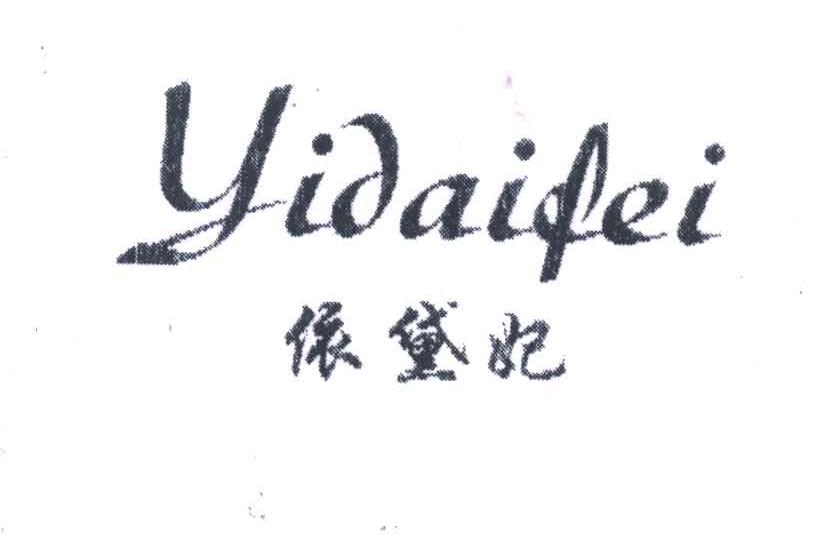 Yidaifei
依黛妃